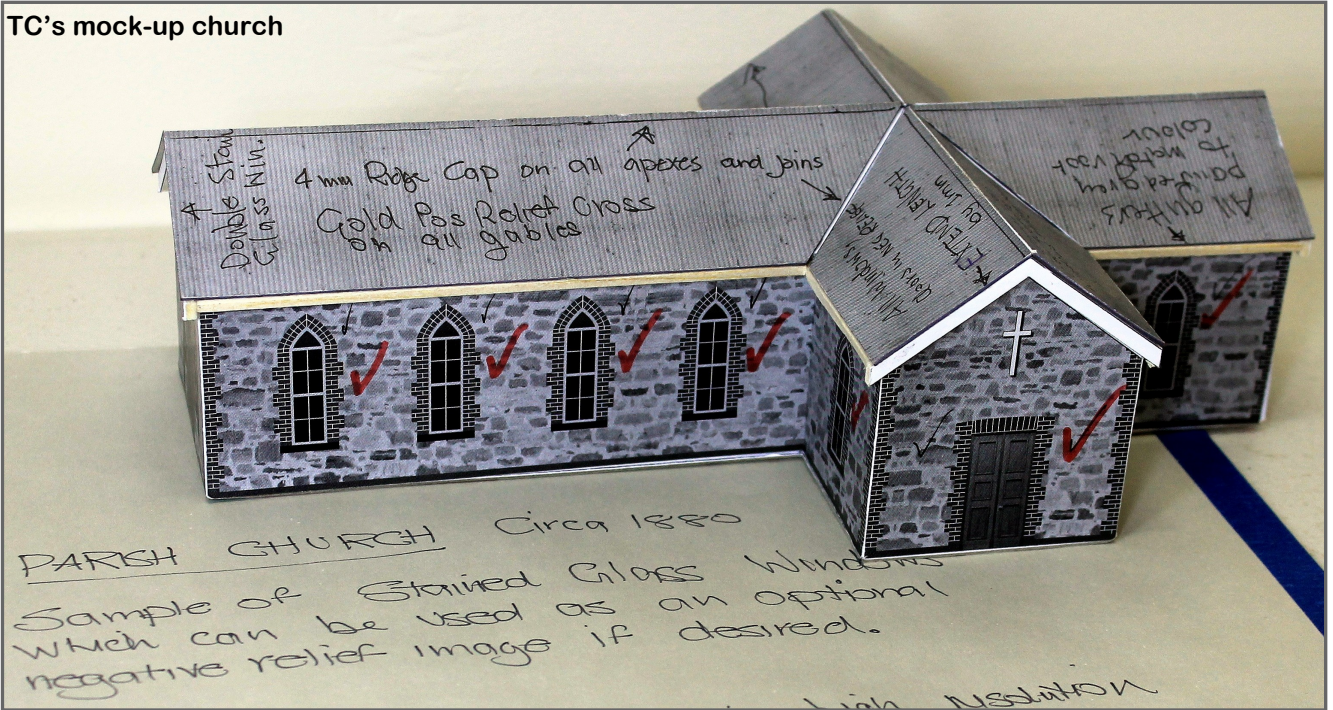 TC's mock-up church
Double Stain
Glass Win.
4 mm Ridge Cap on all apexes and joins
Gold Pos Relief Cross
on all gables
All windows
doors in NEG RELIEF
EXTEND LENGTH
by 1mm
All gutters
painted grey
to match roof
colour
PARISH CHURCH Circa 1880
Sample of Stained Glass Windows
which can be used as an optional
negative relief image if desired.
high resolution